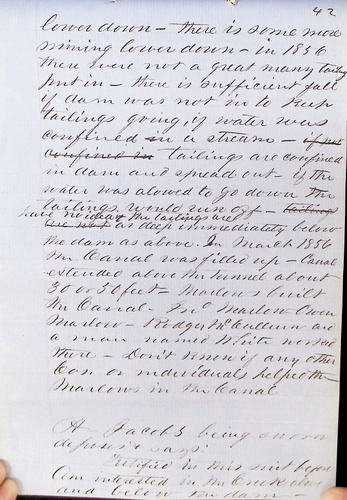 42
lower down – there is some more
mining lower down – in 1856
there were not a great many tailings
put in – there is sufficient fall
if dam was not in to keep
tailings going if water was
confined in a stream – if not
confined in tailings are confined
in dam and spread out – if the
water was alowed to go down the
tailings would run off – tailings
have no idea the tailings are
are not as deep immediately below
the dam as above. In March 1856
the Canal was filled up – Canal
extended above the tunnel about
30 or 50 feet – Marlows built
the Canal – Jno Marlow Owen
Marlow – Rodger McCullum and
a man named White worked
there – Don't know if any other
Cos. or individuals helped the
Marlows in the Canal
A Jacobs being sworn
deposes & says
Testified in this suit before
am interested in the Creek above
and below the dam –